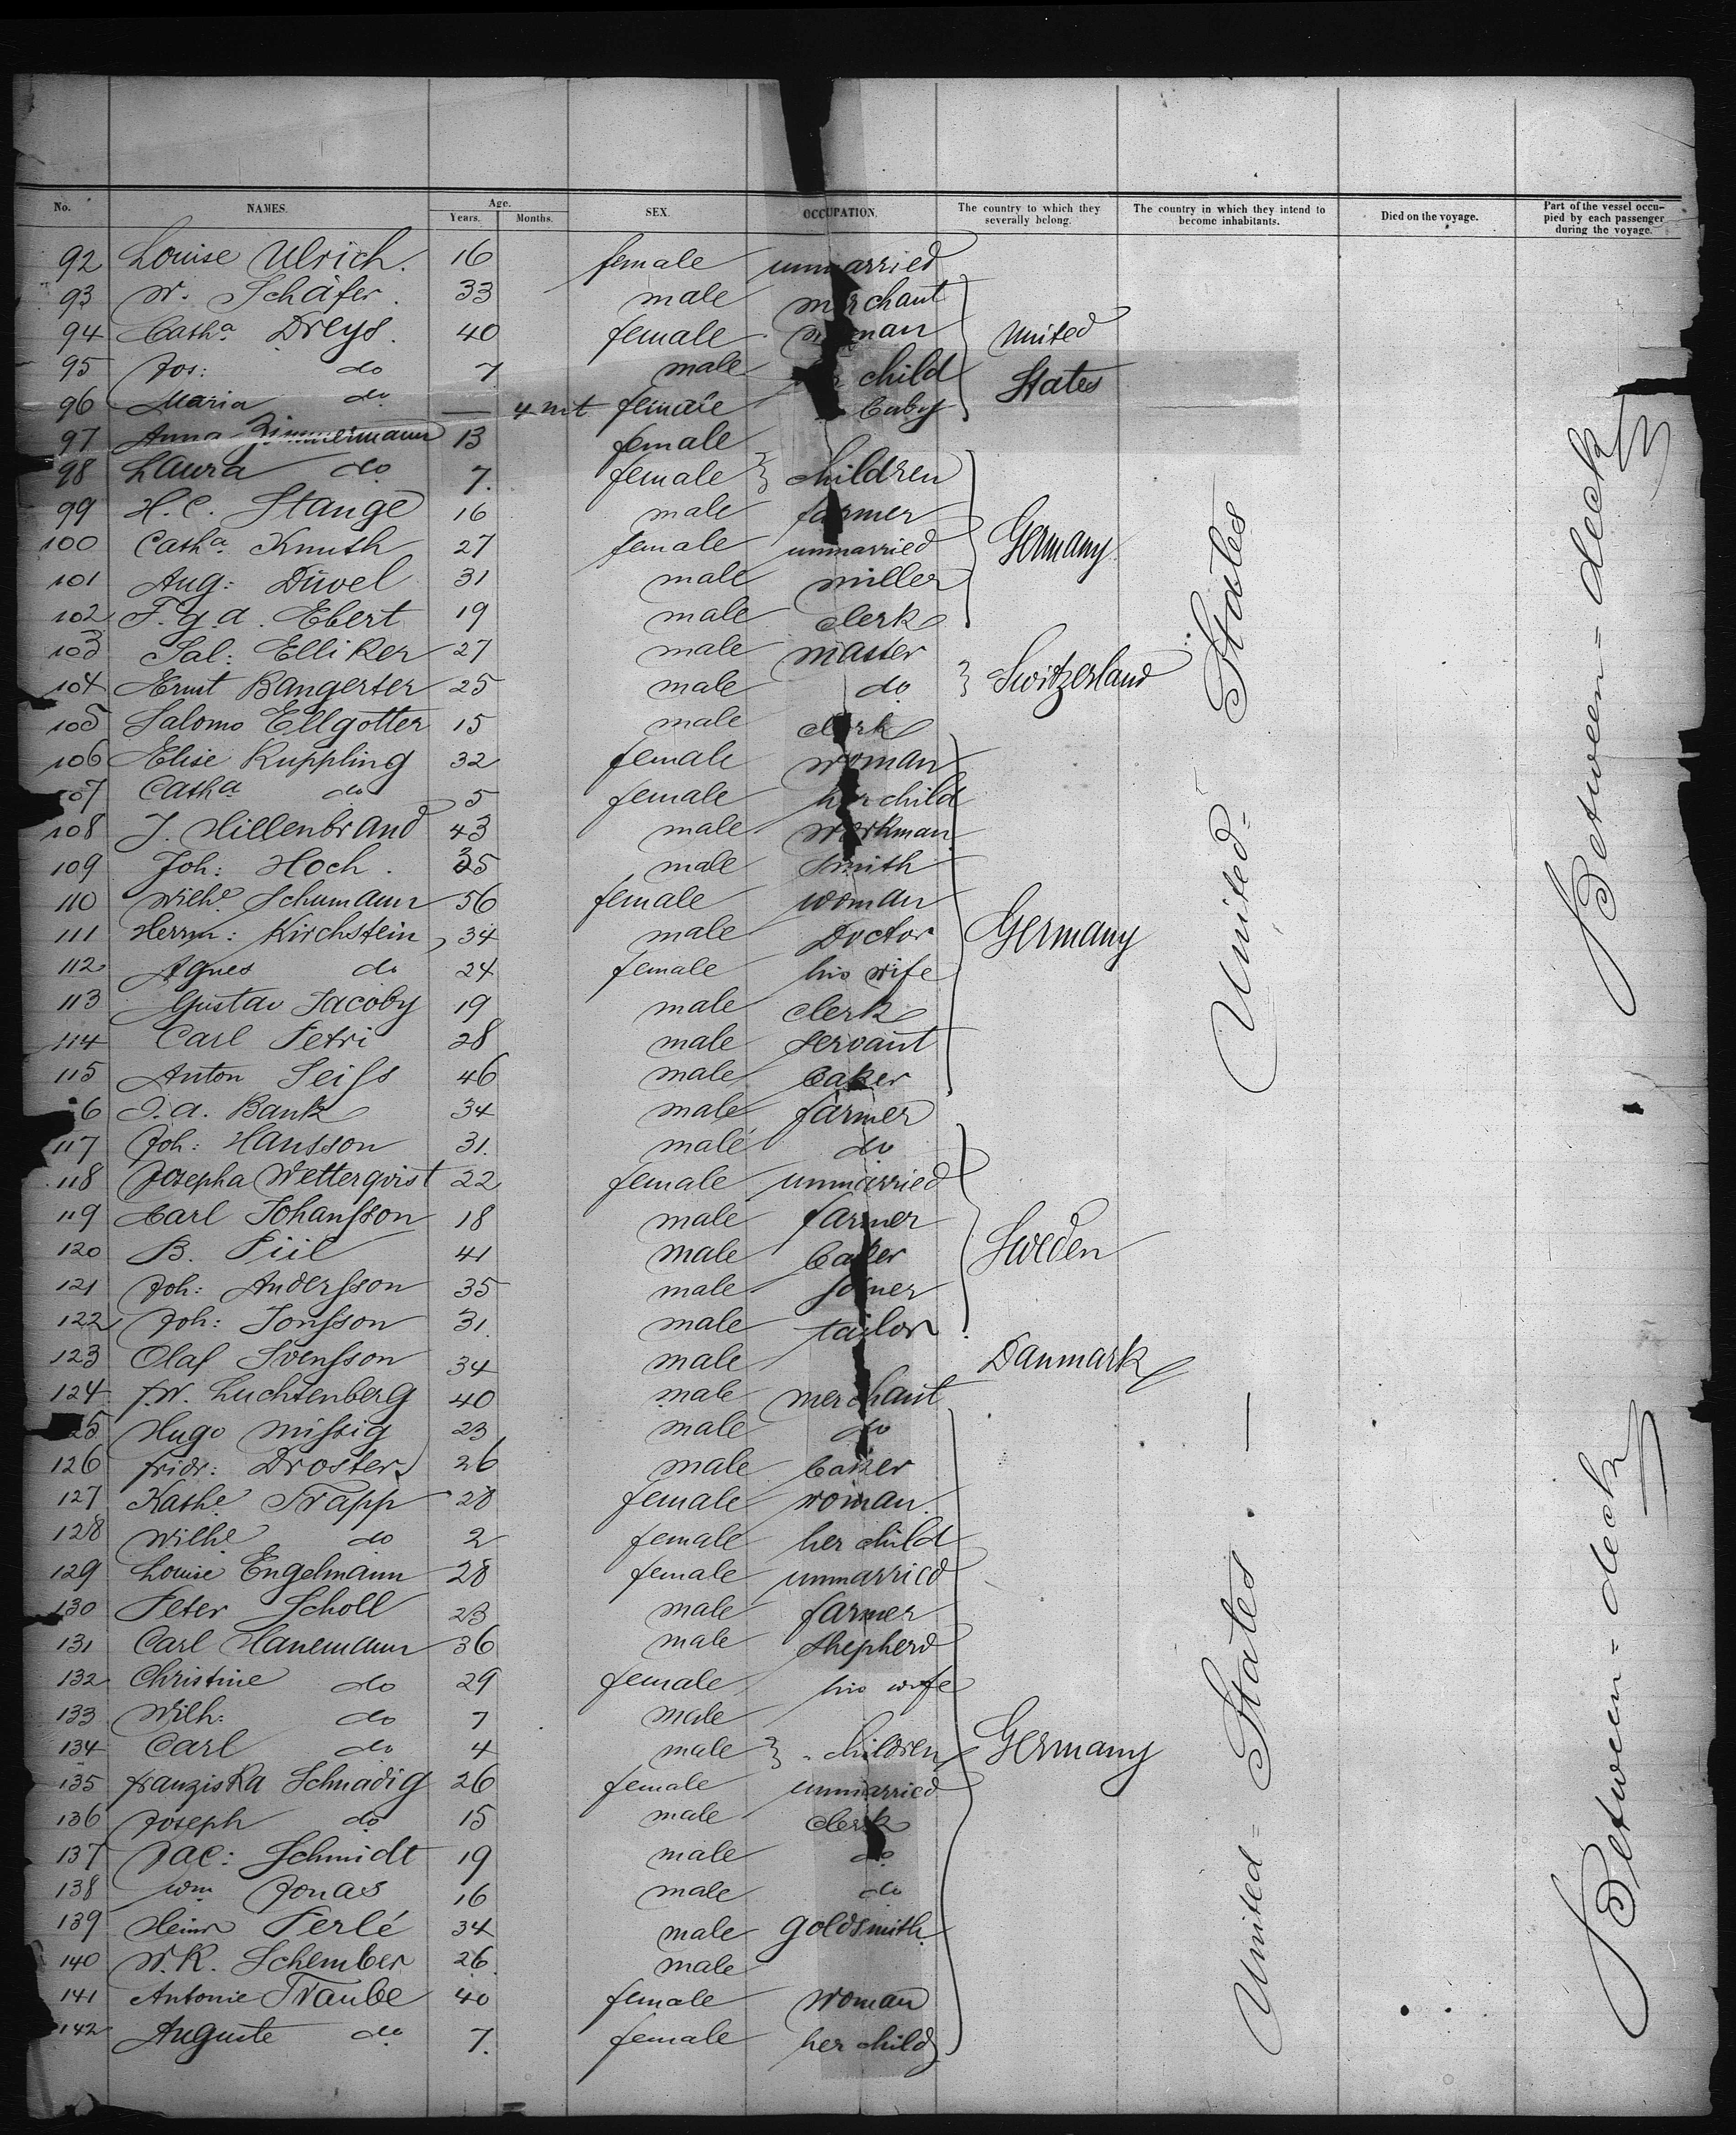 No. NAMES. Age. Years. Months. SEX. OCCUPATION. The country to which they severally belong. The country in which they intend to become inhabitants. Died on the voyage. Part of the vessel occupied by each passenger during the voyage.
92 Louise Ulrich. 16 female unmarried
93 W. Schäfer. 33 male merchant
94 Catha Dreys. 40 female woman United
95 Jos: do 7 male her child States
96 Maria do — 4 mt female baby
97 Anna Zimmermann 13 female
98 Laura do 7. female } children
99 H. C. Stange 16 male farmer
100 Catha Knuth 27 female unmarried Germany
101 Aug: Düvel 31 male miller
102 F. g. a. Ebert 19 male clerk
103 Sal: Elliker 27 male master
104 Ernst Bangerter 25 male do } Switzerland
105 Salomo Ellgotter 15 male clerk
106 Elise Ruppling 32 female woman
107 Catha do 5 female her child
108 J. Hillenbrand 43 male workman
109 Joh: Hoch. 35 male smith
110 Wilhe Schumann 56 female woman
111 Herrm: Kirchstein, 34 male Doctor Germany
112 Agnes do 24 female his wife
113 Gustav Jacoby 19 male clerk
114 Carl Petri 28 male servant
115 Anton Seiss 46 male baker
6 J. a. Bank 34 male farmer
117 Joh: Hansson 31. male do
118 Josepha Wetterqvist 22 female unmarried
119 Carl Johansson 18 male farmer
120 B. Piil 41 male baker Sweden
121 Joh: Andersson 35 male joiner
122 Joh: Jonsson 31. male tailor
123 Olaf Svensson 34 male Danmark
124 f. W. Luchtenberg 40 male merchant
125 Hugo Missig 23 male do
126 fridr: Drosters 26 male baker
127 Kathe Trapp 28 female woman.
128 Wilhe do 2 female her child
129 Louise Engelmann 28 female unmarried
130 Peter Scholl 23 male farmer
131 Carl Hanemann 36 male shepherd
132 Christine do 29 female his wife
133 Wilh: do 7 male
134 Carl do 4 male } children Germany
135 franziska Schnadig 26 female unmarried
136 Joseph do 15 male clerk
137 Jac: Schmidt 19 male do
138 Wm Jonas 16 male do
139 Heinr Perlé 34 male goldsmith.
140 W. K. Schember 26. male
141 Antonie Traube 40 female woman
142 Auguste do 7. female her child
United = States —
United = States —
Between = deck
Between = deck